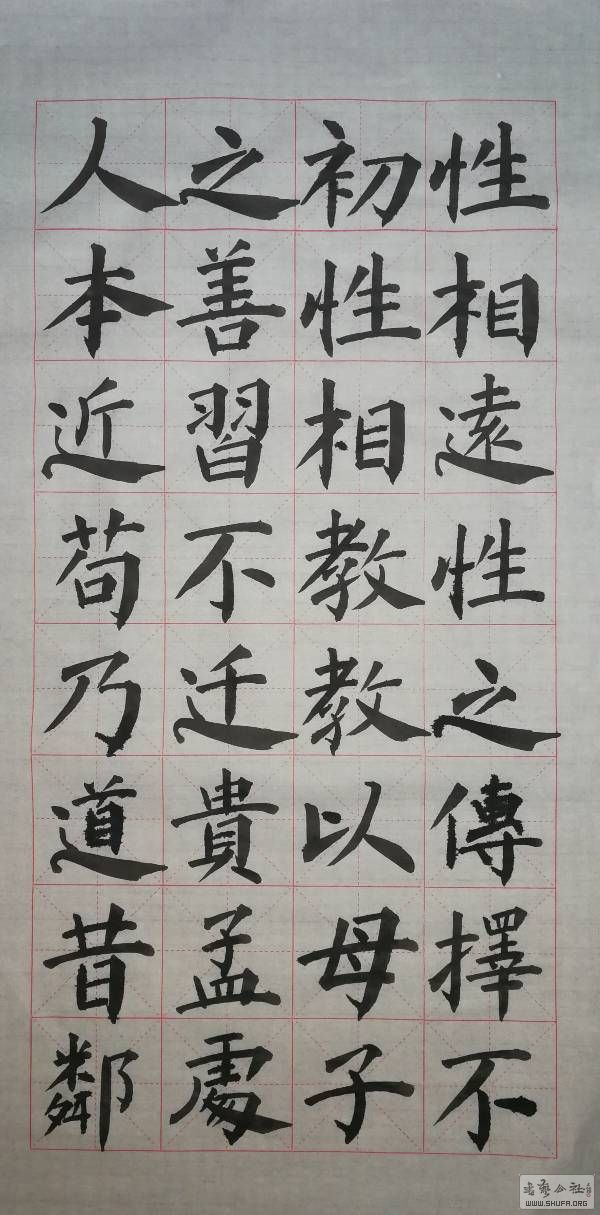 人之初性
本善性相
近習相遠
苟不教性
乃迁教之
道貴以傳
昔孟母擇
鄰處子不
书艺公社
WWW.SHUFA.ORG